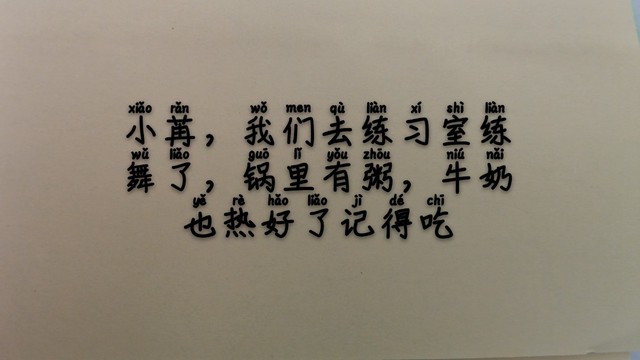 xiǎo rǎn wǒ men qù liàn xí shì liàn
小苒，我们去练习室练
wǔ liǎo guō lǐ yǒu zhōu niú nǎi
舞了，锅里有粥，牛奶
yě rè hǎo liǎo jì dé chī
也热好了记得吃